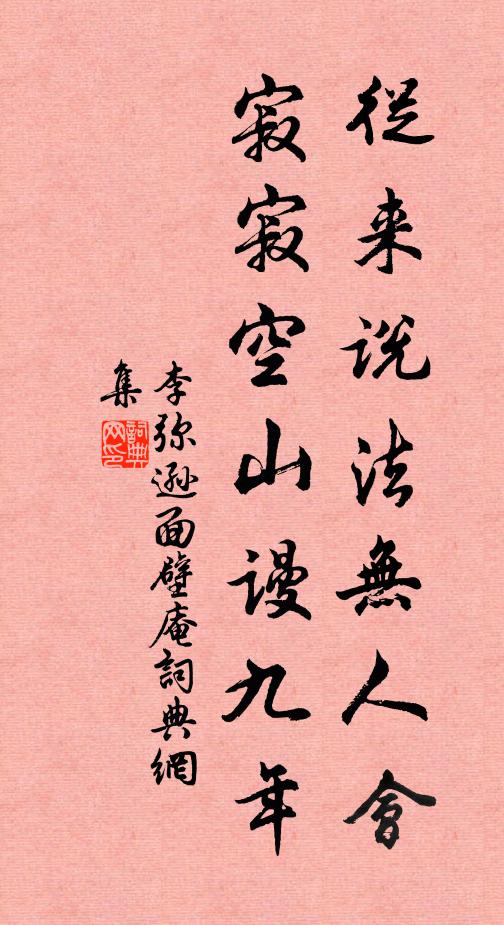 從来説法無人會
寂寂空山謾九年
李弥遜面壁庵詞典網
集
詞典網印